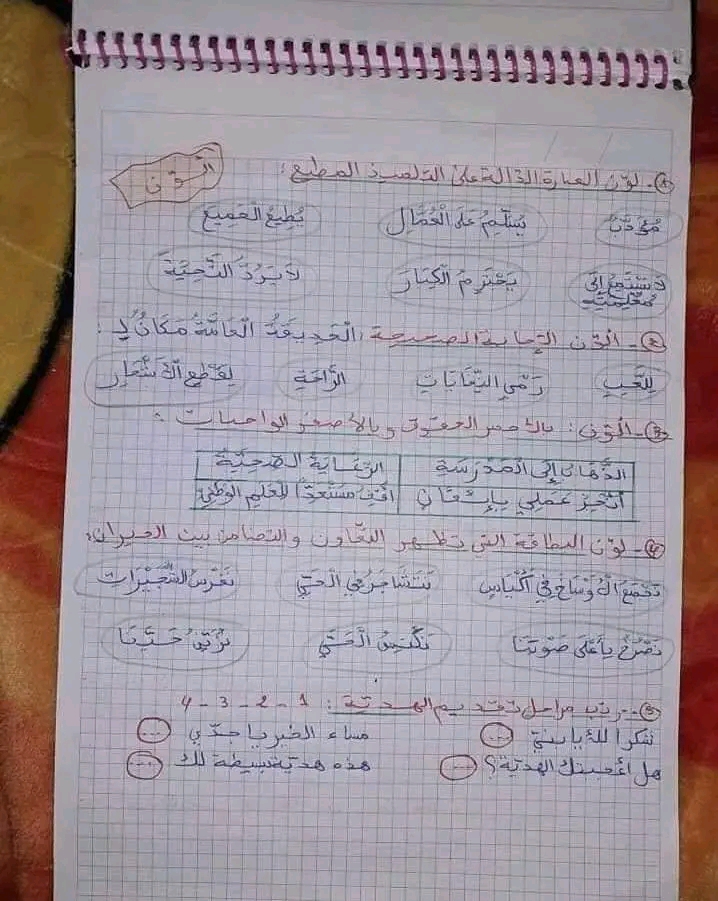 ألوّن
1- لوّن العبارة الدّالة على التلميذ المطيع:
مُؤَدَّبٌ يُسَلِّمُ عَلَى الْعُمَّالِ يُطِيعُ الْجَمِيعَ
لَا يَسْتَمِعُ إِلَى مُعَلِّمَتِهِ يَحْتَرِمُ الْكِبَارَ لَا يَرُدُّ التَّحِيَّةَ
2- ألوّن الإجابة الصحيحة: الْحَدِيقَةُ الْعَامَّةُ مَكَانٌ لِـ:
لِلَّعِبِ رَمْيِ النِّفَايَاتِ الرَّاحَةِ لِقَطْعِ الْأَشْجَارِ
3- ألوّن: بالأحمر الحقوق وبالأصفر الواجبات:
الذَّهَابُ إِلَى الْمَدْرَسَةِ الرِّعَايَةُ الصِّحِّيَّةُ
أُنْجِزُ عَمَلِي بِإِتْقَانٍ أَقِفُ مُسْتَعِدًّا لِلْعَلَمِ الْوَطَنِي
4- لوّن البطاقة التي تظهر التعاون والتضامن بين الجيران:
نَجْمَعُ الْأَوْسَاخَ فِي أَكْيَاسٍ نَتَشَاجَرُ فِي الْحَيِّ نَغْرِسُ الشُّجَيْرَاتِ
نَصْرُخُ بِأَعْلَى صَوْتِنَا نَكْنُسُ الْحَيَّ نُزَيِّنُ حَيَّنَا
5- رتب مراحل تقديم الهدية: 1 - 2 - 3 - 4
شكرا لك يا بنيّ ... مساء الخير يا جدّي ...
هل أعجبتك الهديّة؟ ... هذه هديّة بسيطة لك ...